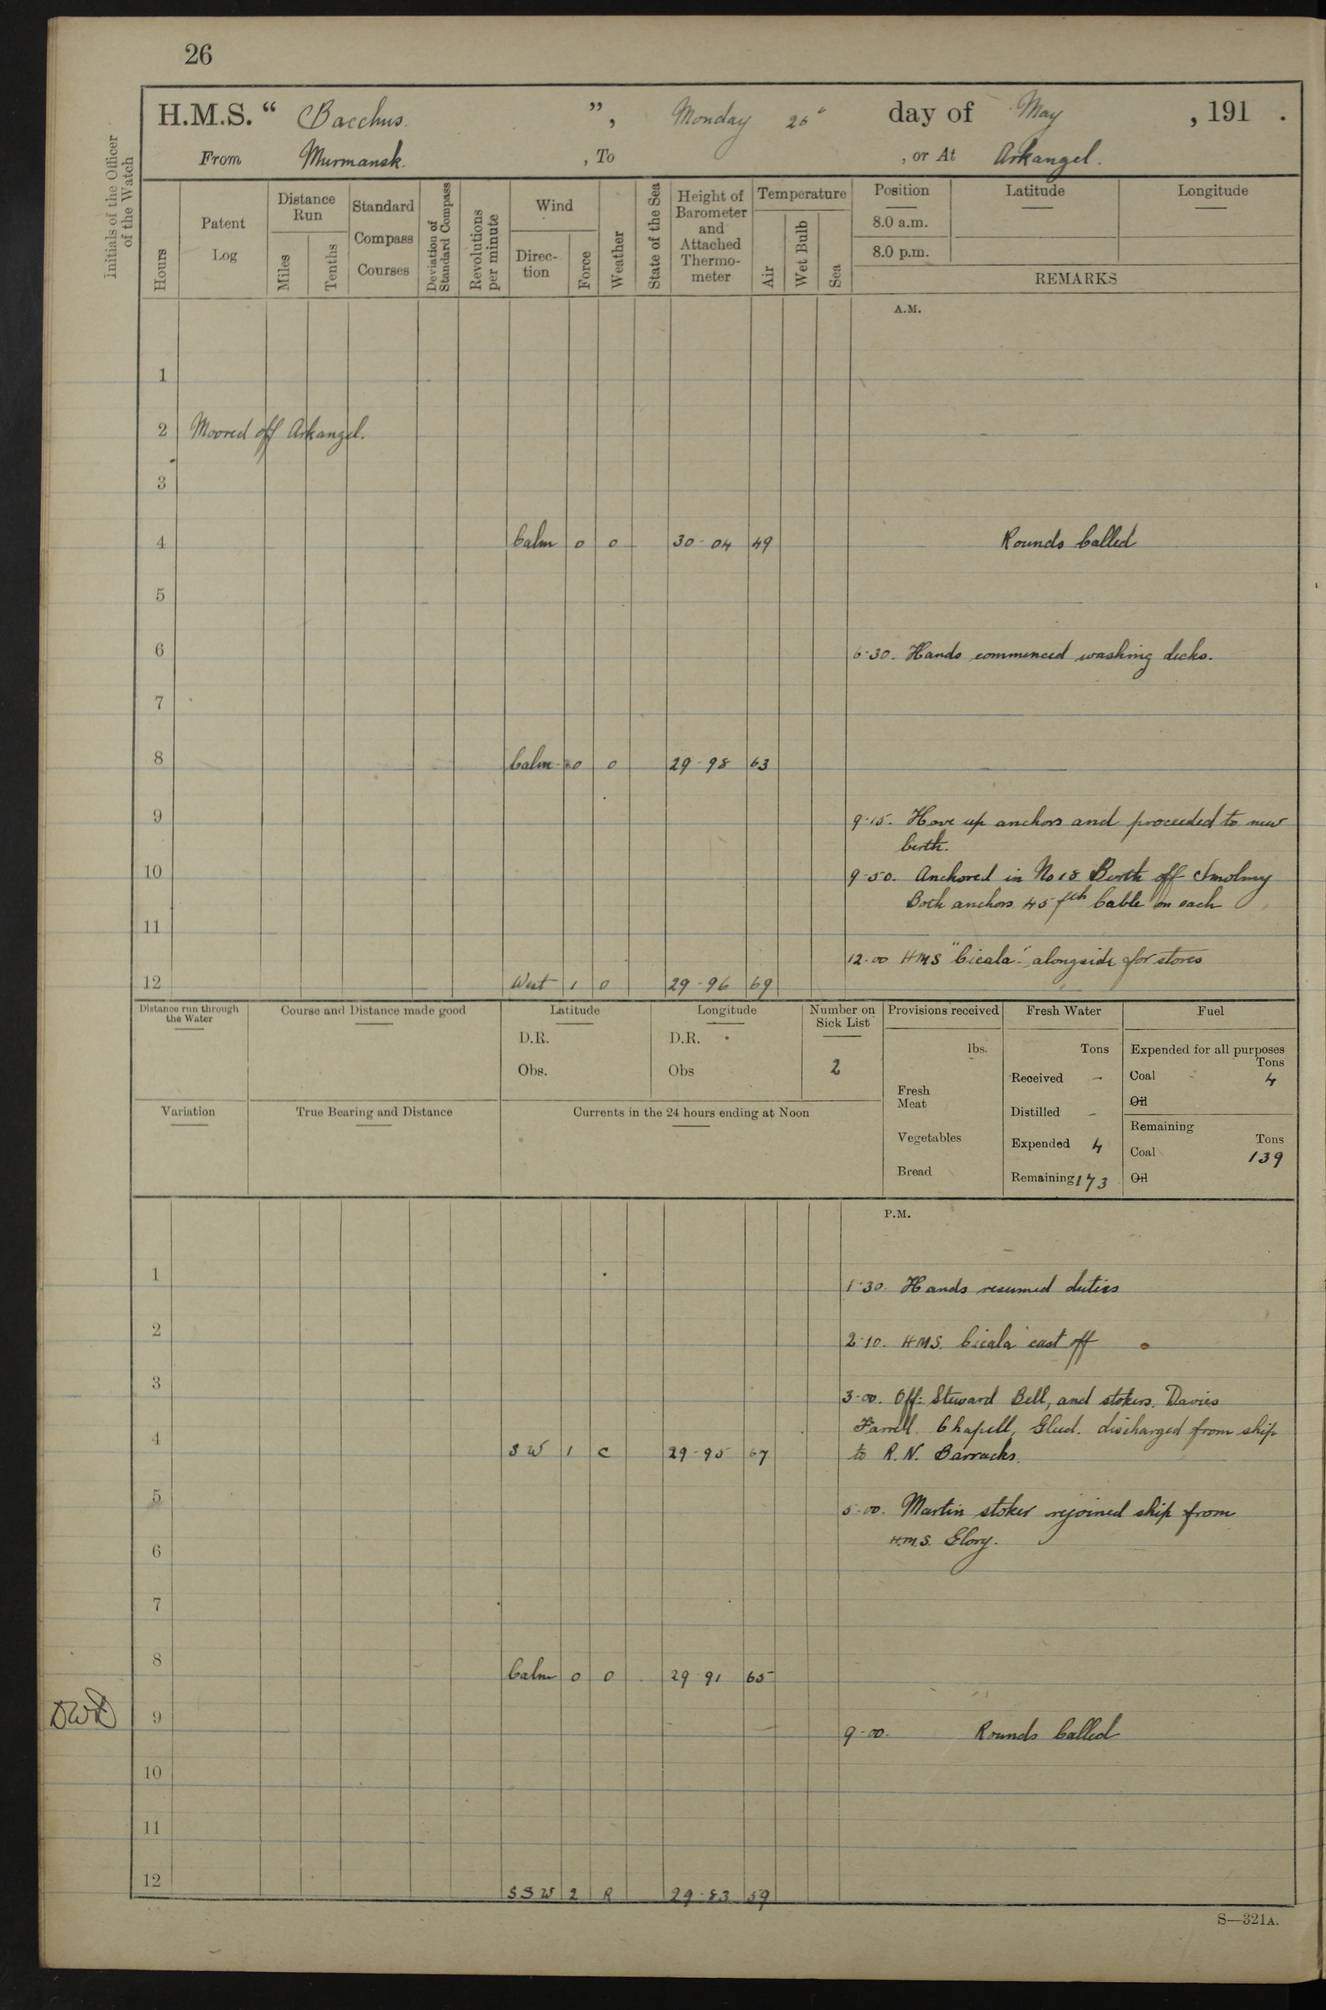 26
H.M.S. “ Bacchus. ”, Monday 26" day of May , 191 .
From Murmansk. , To , or At Arkangel.
Initials of the Officer of the Watch
Hours
Patent Log
Distance Run
Miles
Tenths
Standard Compass Courses
Deviation of Standard Compass
Revolutions per minute
Wind
Direction
Force
Weather
State of the Sea
Height of Barometer and Attached Thermometer
Temperature
Air
Wet Bulb
Sea
Position Latitude Longitude
8.0 a.m.
8.0 p.m.
REMARKS
A.M.
1
2 Moored off Arkangel.
3
4 Calm 0 0 30-04 49 Rounds Called
5
6 6-30. Hands commenced washing decks.
7
8 Calm 0 0 29-98 63
9 9-15. Hove up anchors and proceeded to new
berth.
10 9-50. Anchored in No 18 Berth off Smolny
Both anchors 45 fth Cable on each
11
12-00 HMS "Cicala" alongside for stores
12 West 1 0 29-96 69
Distance run through the Water
Course and Distance made good
Latitude
D.R.
Obs.
Longitude
D.R.
Obs
Number on Sick List
2
Provisions received
lbs.
Fresh Meat
Vegetables
Bread
Fresh Water
Tons
Received -
Distilled -
Expended 4
Remaining 173
Fuel
Expended for all purposes
Tons
Coal 4
Oil
Remaining
Tons
Coal 139
Oil
Variation
True Bearing and Distance
Currents in the 24 hours ending at Noon
P.M.
1 1-30. Hands resumed duties
2 2-10. HMS. Cicala cast off
3 3-00. Off: Steward Bell, and stokers. Davies
Farrell. Chapell, Gleed. discharged from ship
4 SW 1 C 29-95 67 to R.N. Barracks.
5 5-00. Martin stoker rejoined ship from
H.M.S. Glory.
6
7
8 Calm 0 0 29 91 65
DWD 9 9-00. Rounds Called
10
11
12 SSW 2 R 29-83 59
S—321A.